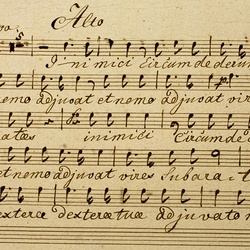 Alto
I- ni mici Circumdederun
nemo adjuvat et nemo adjuvat vir
inimici Circumde
et nemo adjuvat vires Subara
dexterae dexterae tuae adjuvato